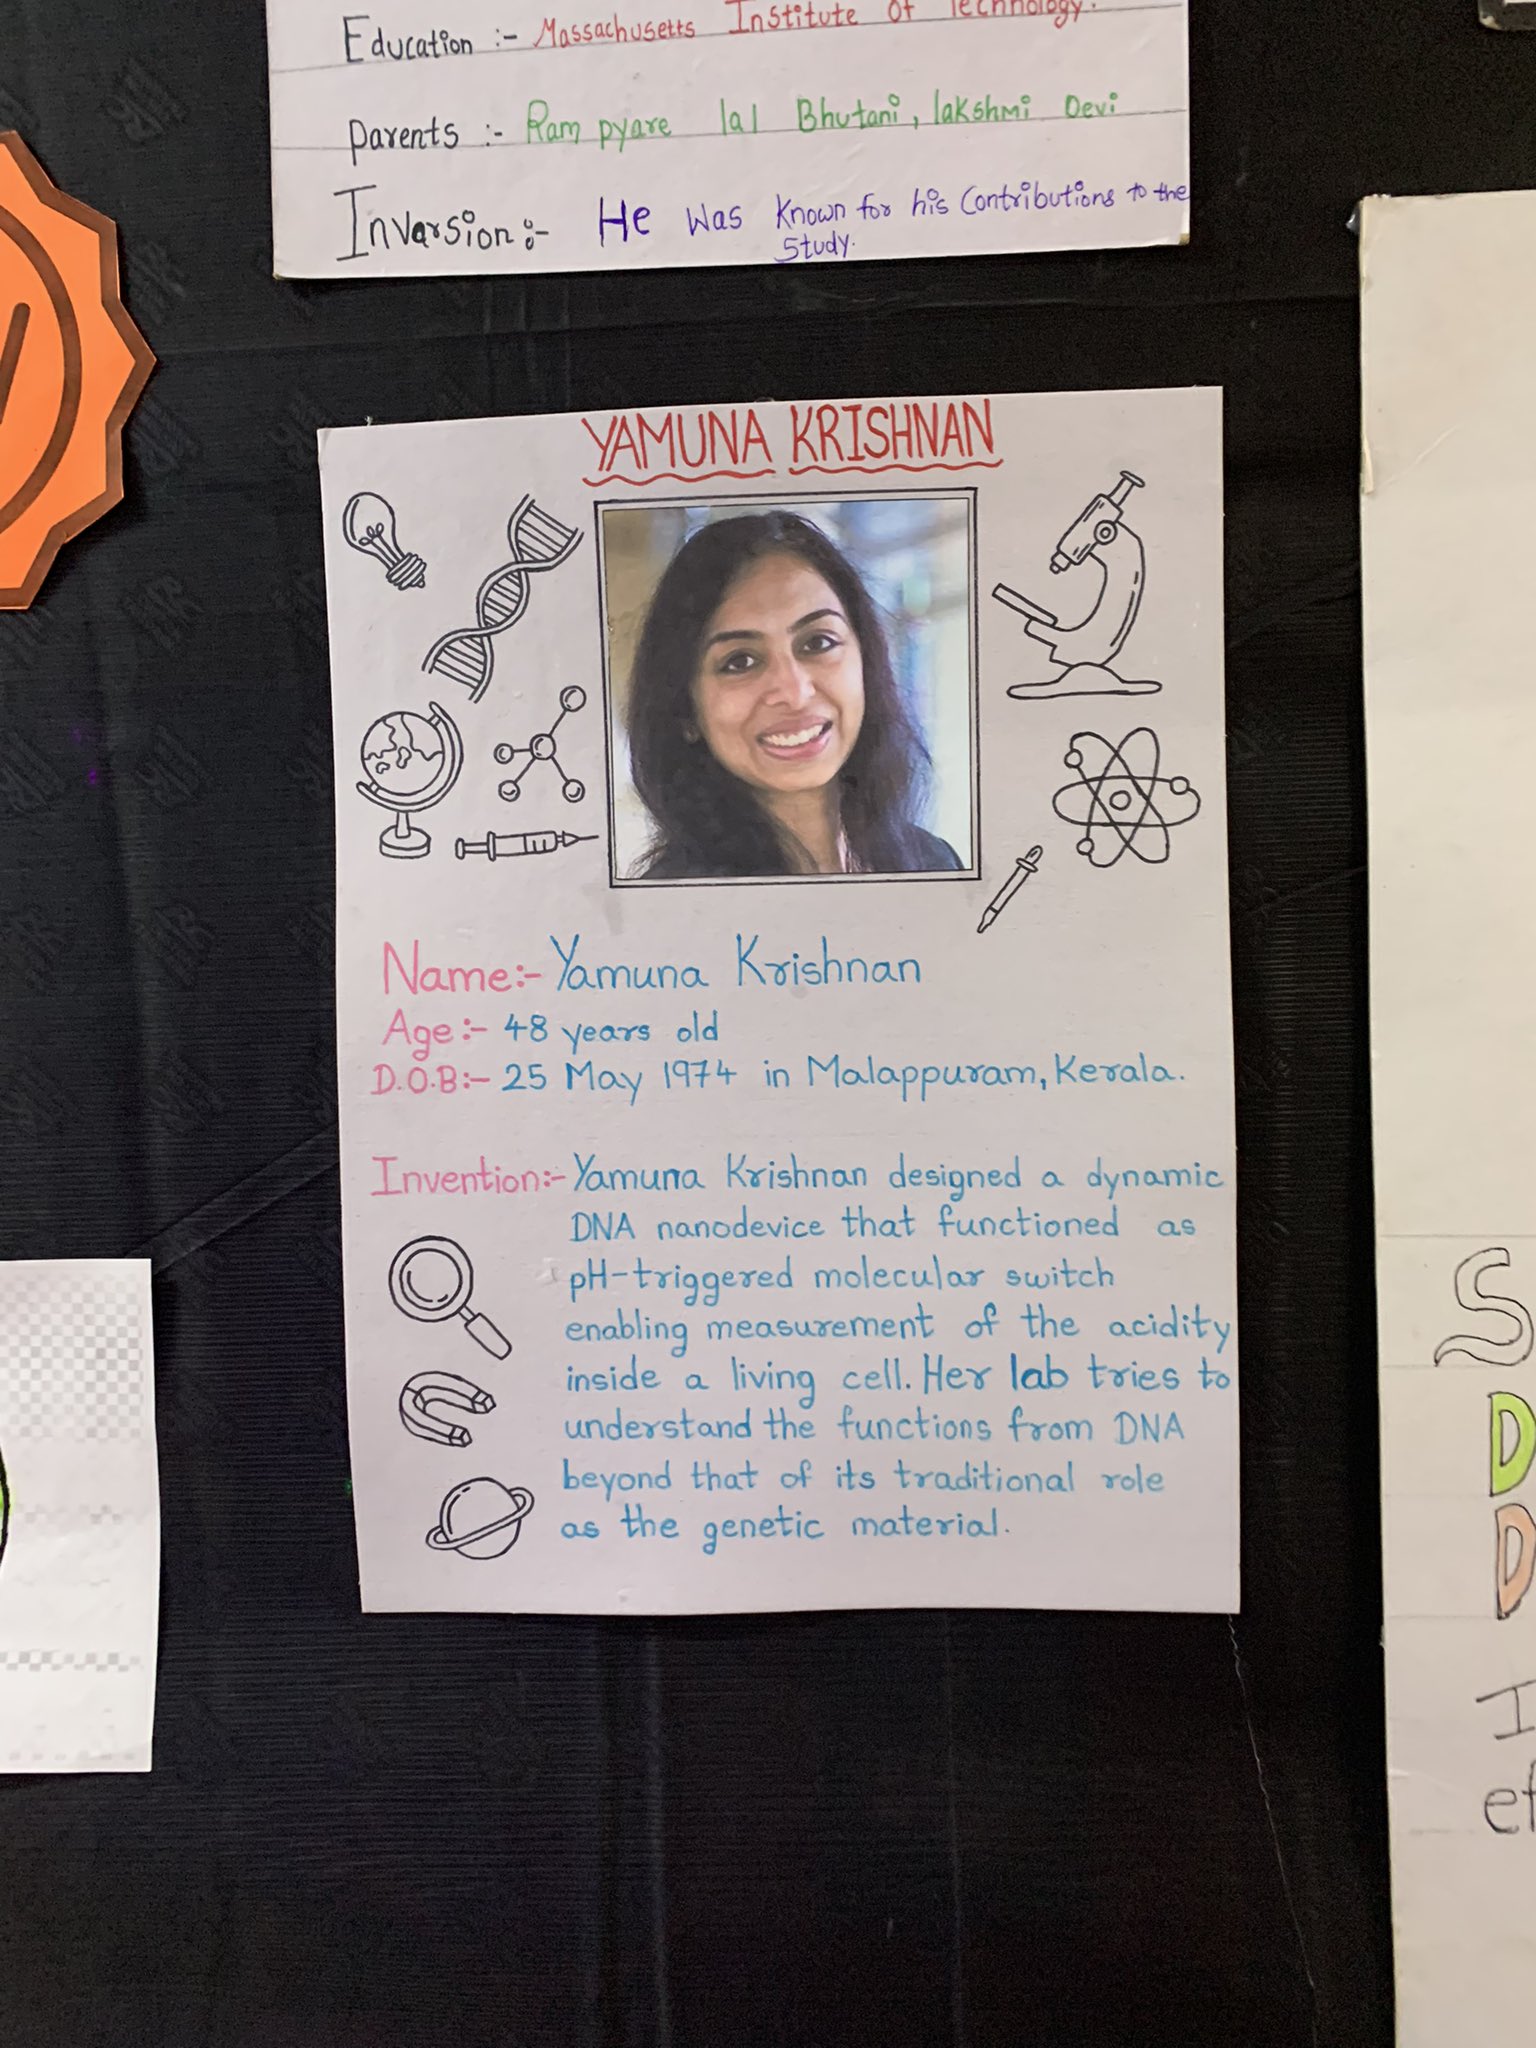 Education :- Massachusetts Institute Of Technology.
Parents :- Ram pyare lal Bhutani, lakshmi Devi
Invarsion :- He was known for his Contributions to the
Study.
YAMUNA KRISHNAN
Name:- Yamuna Krishnan
Age:- 48 years old
D.O.B:- 25 May 1974 in Malappuram, Kerala.
Invention:- Yamuna Krishnan designed a dynamic
DNA nanodevice that functioned as
pH-triggered molecular switch
enabling measurement of the acidity
inside a living cell. Her lab tries to
understand the functions from DNA
beyond that of its traditional role
as the genetic material.
S
D
D
I